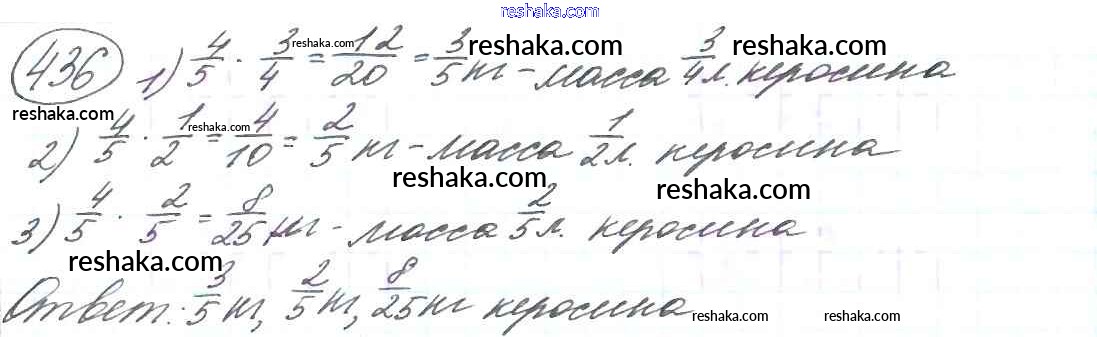 reshaka.com
436 1) 4/5 · 3/4 = 12/20 = 3/5 кг - масса 3/4 л. керосина
reshaka.com reshaka.com reshaka.com
reshaka.com
2) 4/5 · 1/2 = 4/10 = 2/5 кг - масса 1/2 л. керосина
reshaka.com
reshaka.com reshaka.com
3) 4/5 · 2/5 = 8/25 кг - масса 2/5 л. керосина
reshaka.com
Ответ: 3/5 кг, 2/5 кг, 8/25 кг керосина
reshaka.com reshaka.com